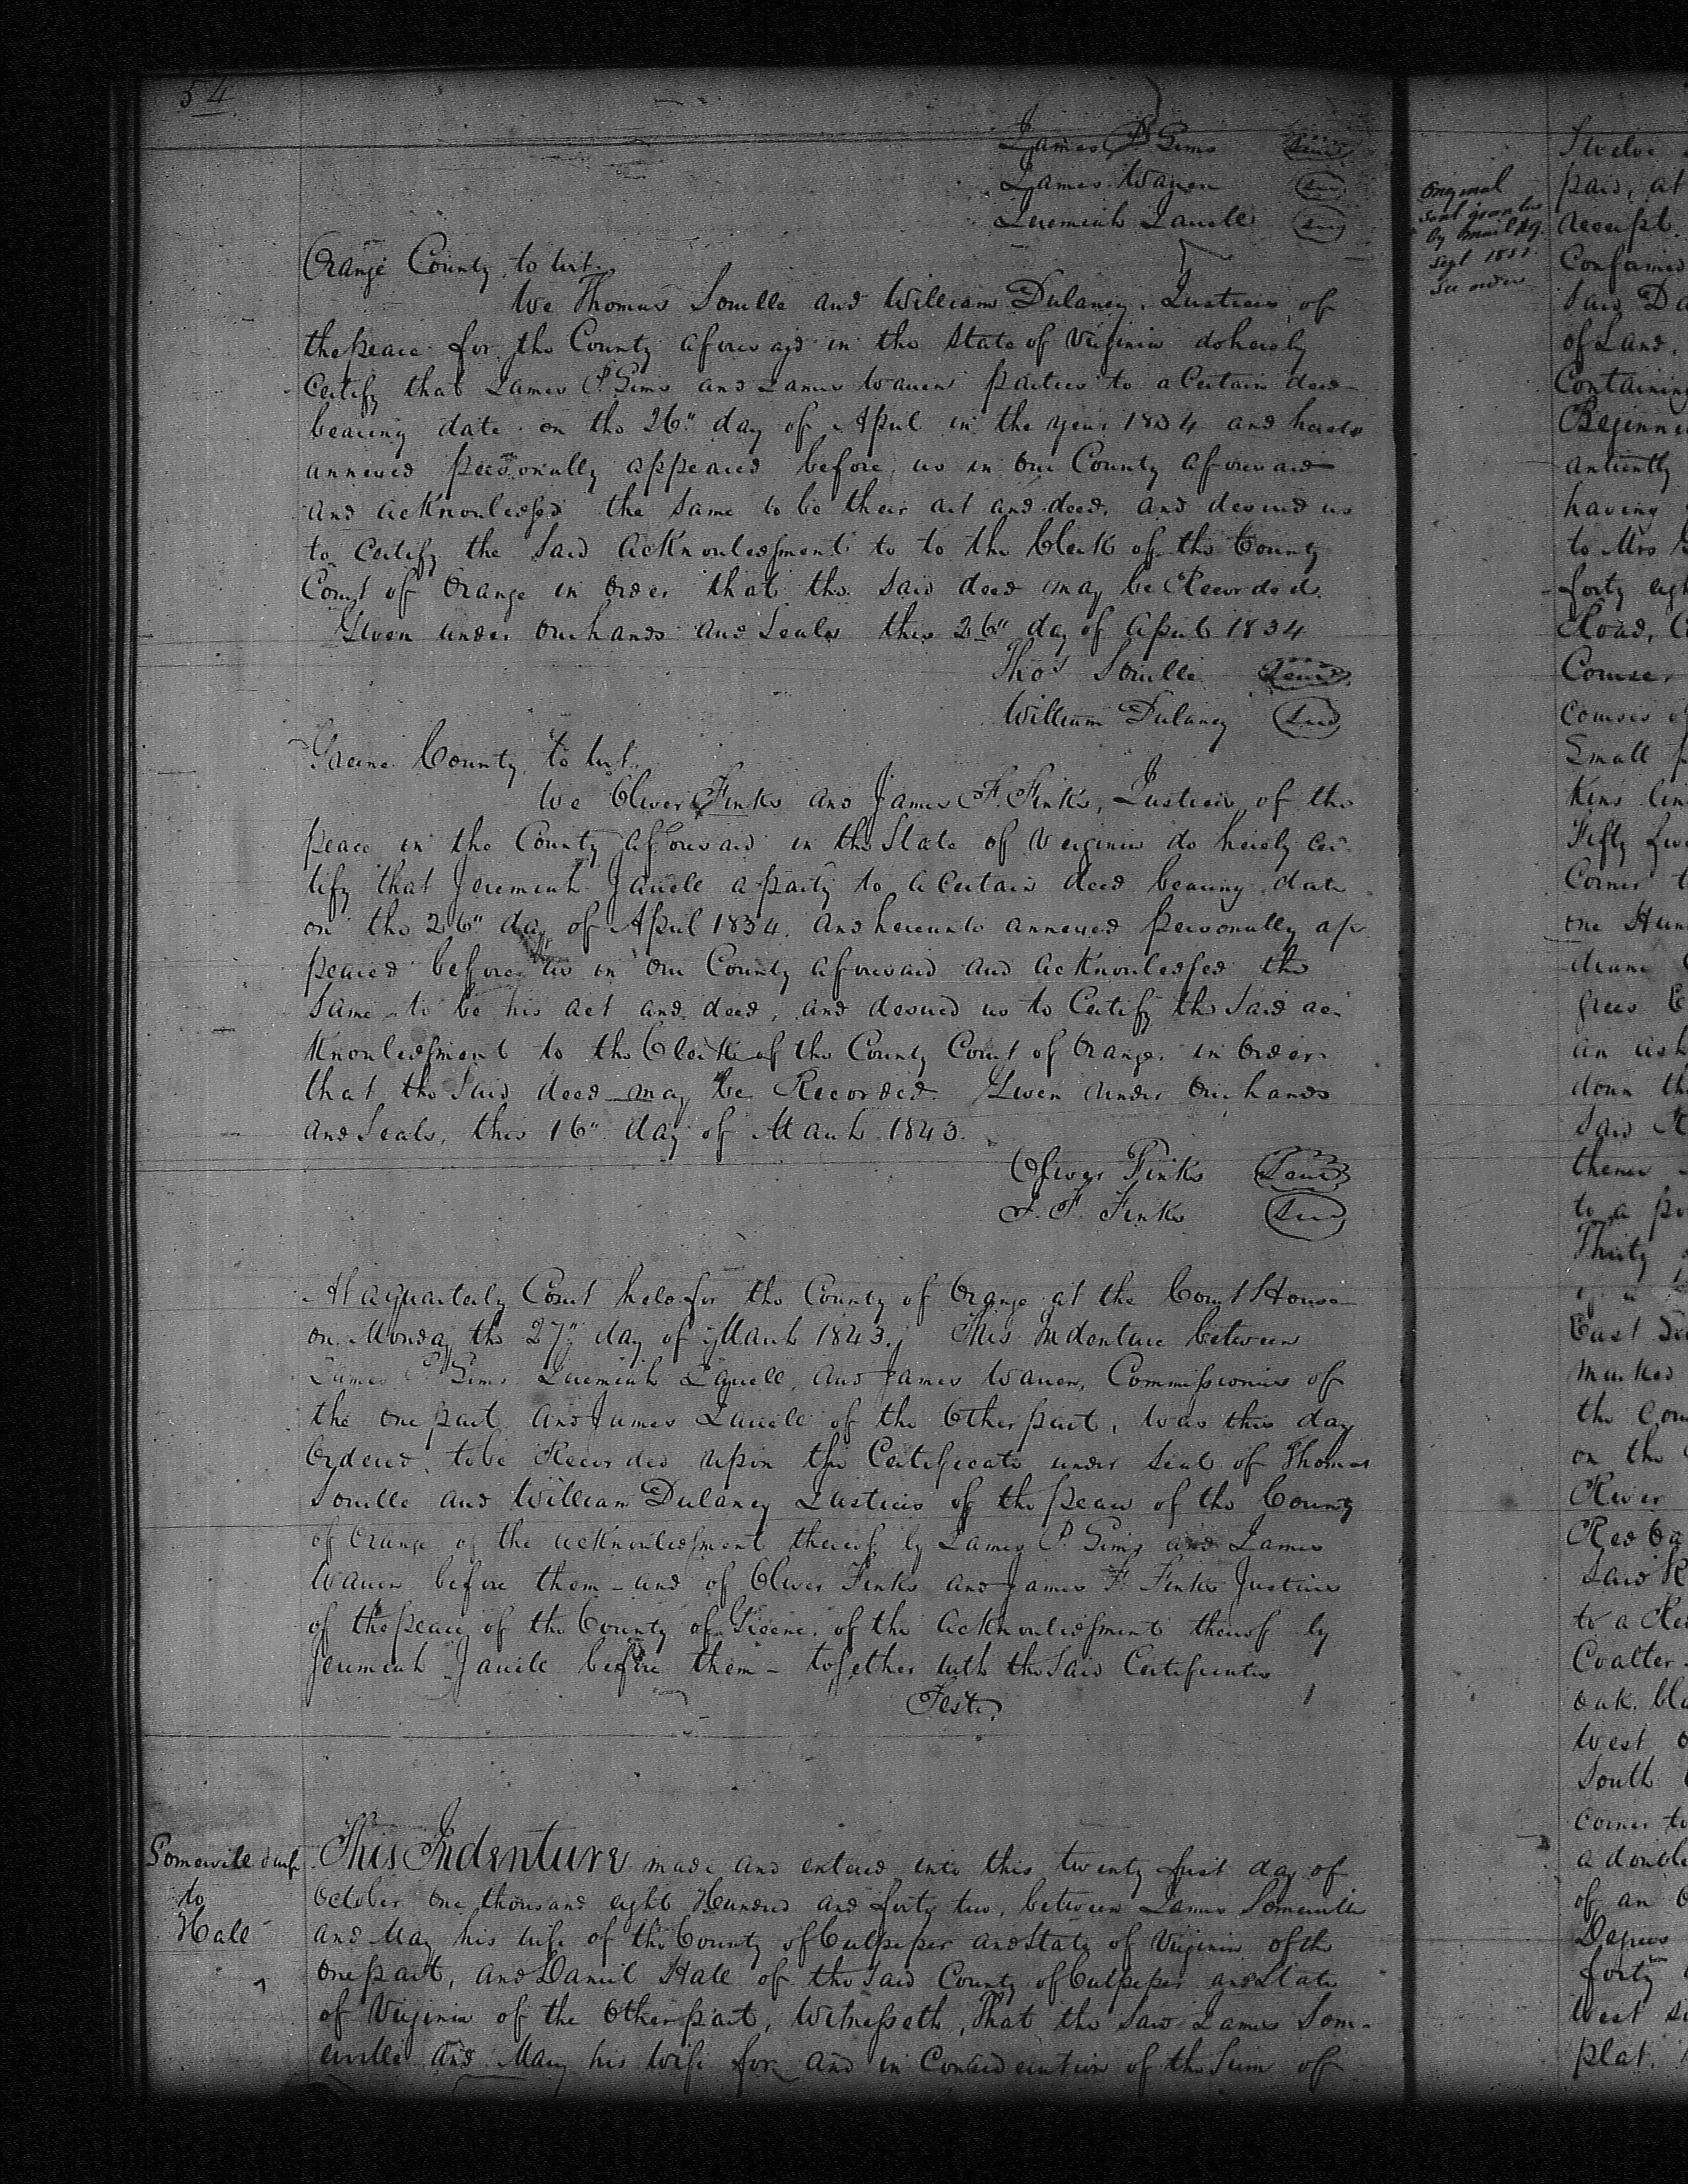 54
James P. Sims Seal
James Waren Seal
Jeremiah Jarrell Seal
Orange County, to wit.
We Thomas Sorrille and William Dulaney, Justices of
the peace for the County aforesaid in the State of Virginia do hereby
Certify that James P. Sims and James Waren parties to a Certain deed
bearing date on the 26" day of April in the year 1834 and hereto
annexed personally appeared before us in our County aforesaid
and acknowledged the same to be their act and deed, and desired us
to Certify the said acknowledgment to to the Clerk of the County
Court of Orange in order that the said deed may be Recorded.
Given under our hands and Seals this 26" day of April 1834
Thos Sorrille Seal
William Dulaney Seal
Greene County, to wit.
We Oliver Finks and James F. Finks, Justices of the
peace in the County aforesaid in the State of Virginia do hereby cer-
tify that Jeremiah Jarrell a party to a Certain deed bearing date
on the 26" day of April 1834. and hereunto annexed personally ap
peared before us in our County aforesaid and acknowledged the
same to be his act and deed, and desired us to Certify the said ac-
knowledgment to the Clerk of the County Court of Orange, in order
that the said deed may be Recorded. Given under our hands
and Seals, this 16" day of March 1843.
Oliver Finks Seal
J. F. Finks Seal
At a quarterly Court held for the County of Orange at the Court House
on Monday the 27" day of March 1843. This Indenture between
James P. Sims Jeremiah Jarrell, and James Waren, Commissioners of
the one part and James Jarrell of the Other part, was this day
Ordered, to be Recorded upon the Certificate under seal of Thomas
Sorrille and William Dulaney Justices of the peace of the County
of Orange of the acknowledgment thereof by James P. Sims and James
Waren before them - and of Oliver Finks and James F. Finks Justices
of the peace of the County of Greene, of the acknowledgment thereof by
Jeremiah Jarrell before them - together with the said Certificates
Teste,
Somerville & wife
to
Hall
This Indenture made and entered into this twenty first day of
October one thousand eight Hundred and forty two, between James Somerville
and May his wife of the County of Culpeper and State of Virginia of the
one part, and Daniel Hall of the said County of Culpeper and State
of Virginia of the Other part, Witnesseth, That the said James Som-
erville and Mary his wife for and in Consideration of the Sum of
Original
sent grantee
by mail
Sept
See order
Twelve
paid, at
receipt
Confirmed
said Da
of Land,
Containing
Beginni
antiently
having
to Mrs
forty eigh
Road,
Course,
courses o
Small p
kins lin
Fifty five
Corner t
one Hun
grees E
an ash
down th
said
thence
to a po
Thirty
East
marked
the Cou
on the
River
Red Oa
Said R
to a Re
Coalter
oak. bla
West
South
Corner to
a double
of an O
Degrees
forty
West
plat.